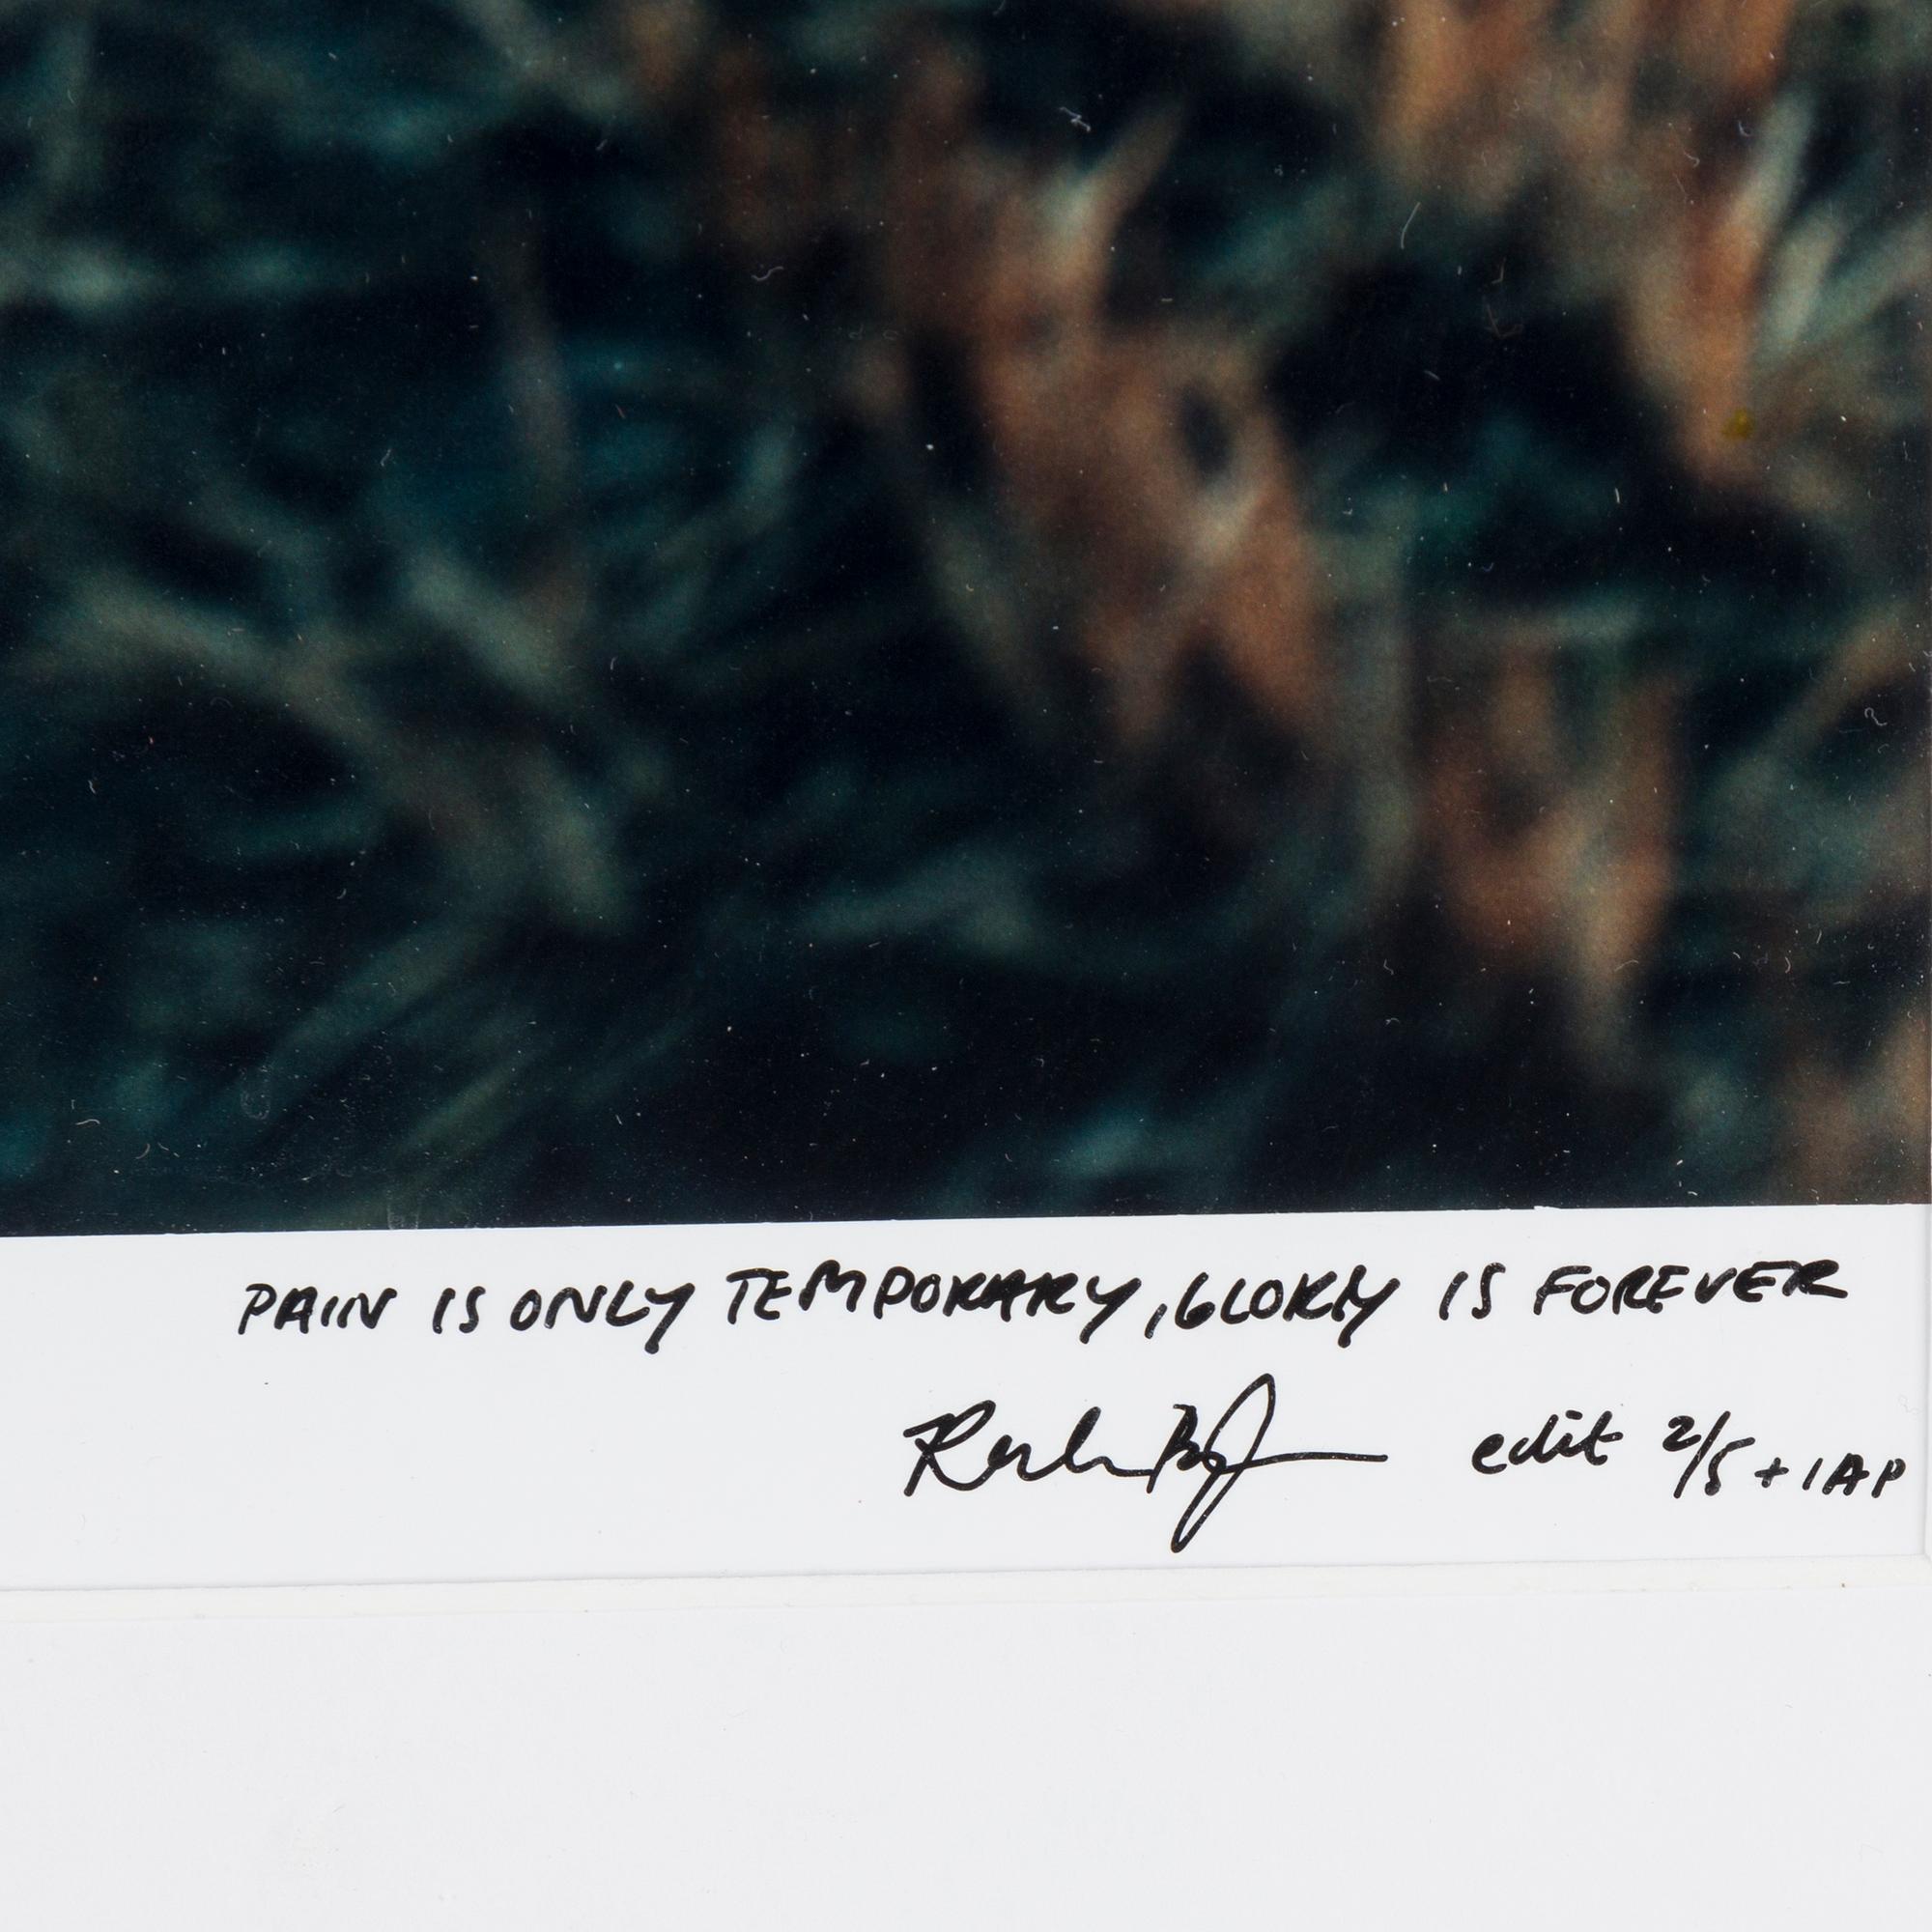 PAIN IS ONLY TEMPORARY, GLORY IS FOREVER
edit 2/5 + 1AP